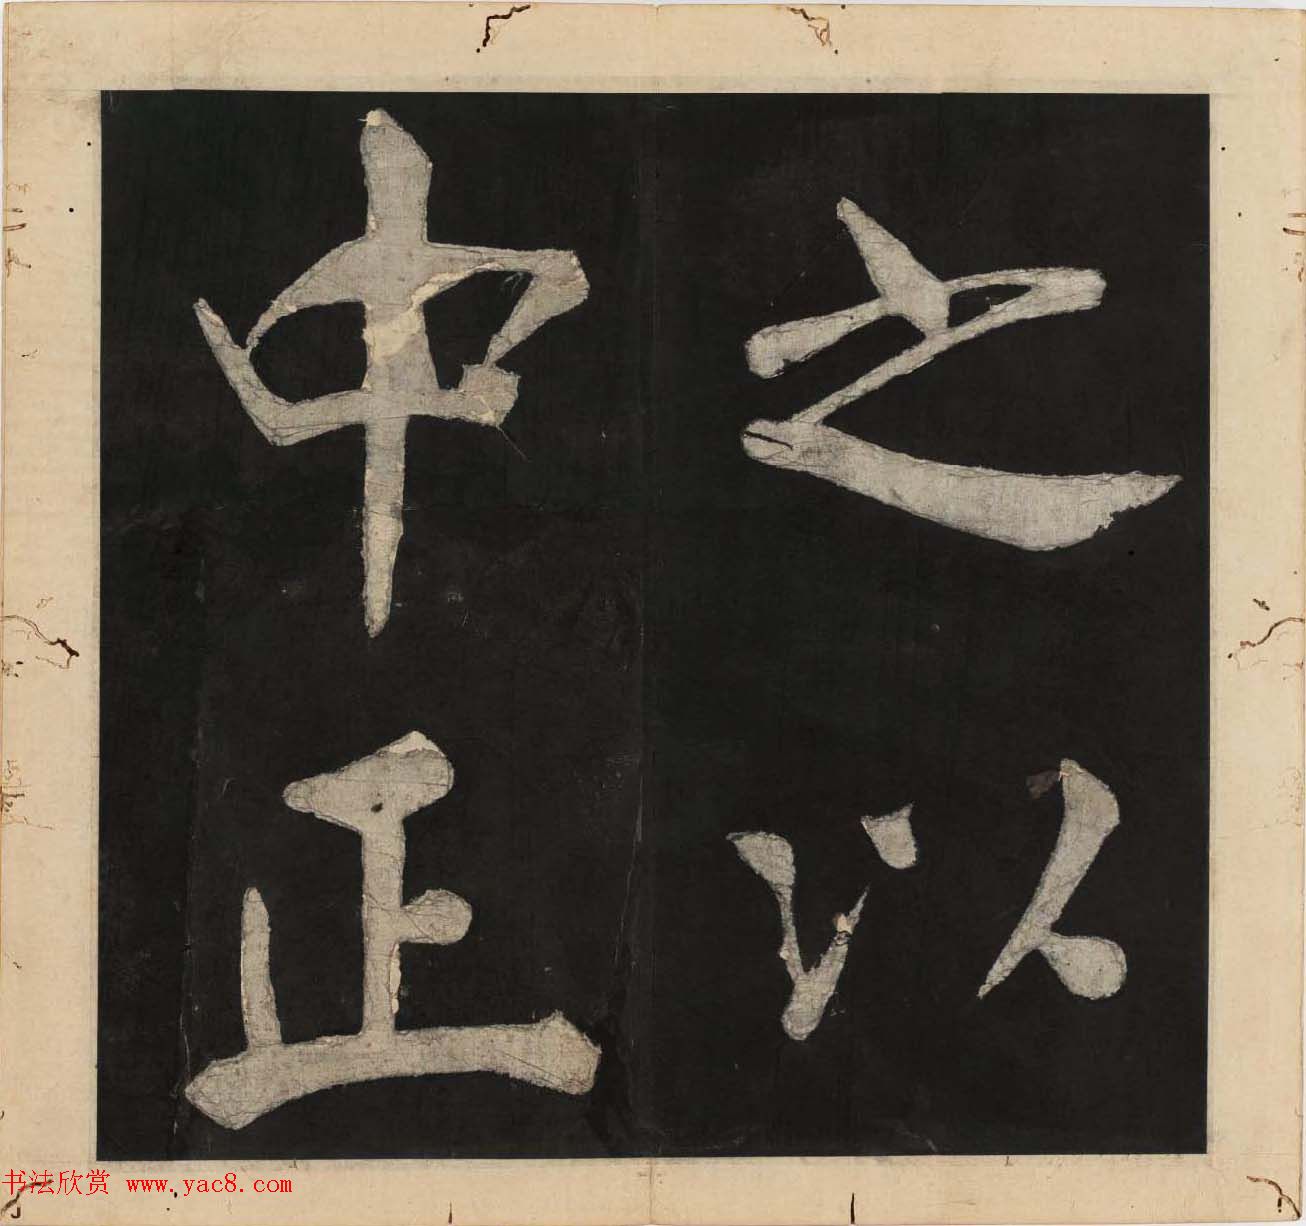 之以
中正
书法欣赏 www.yac8.com